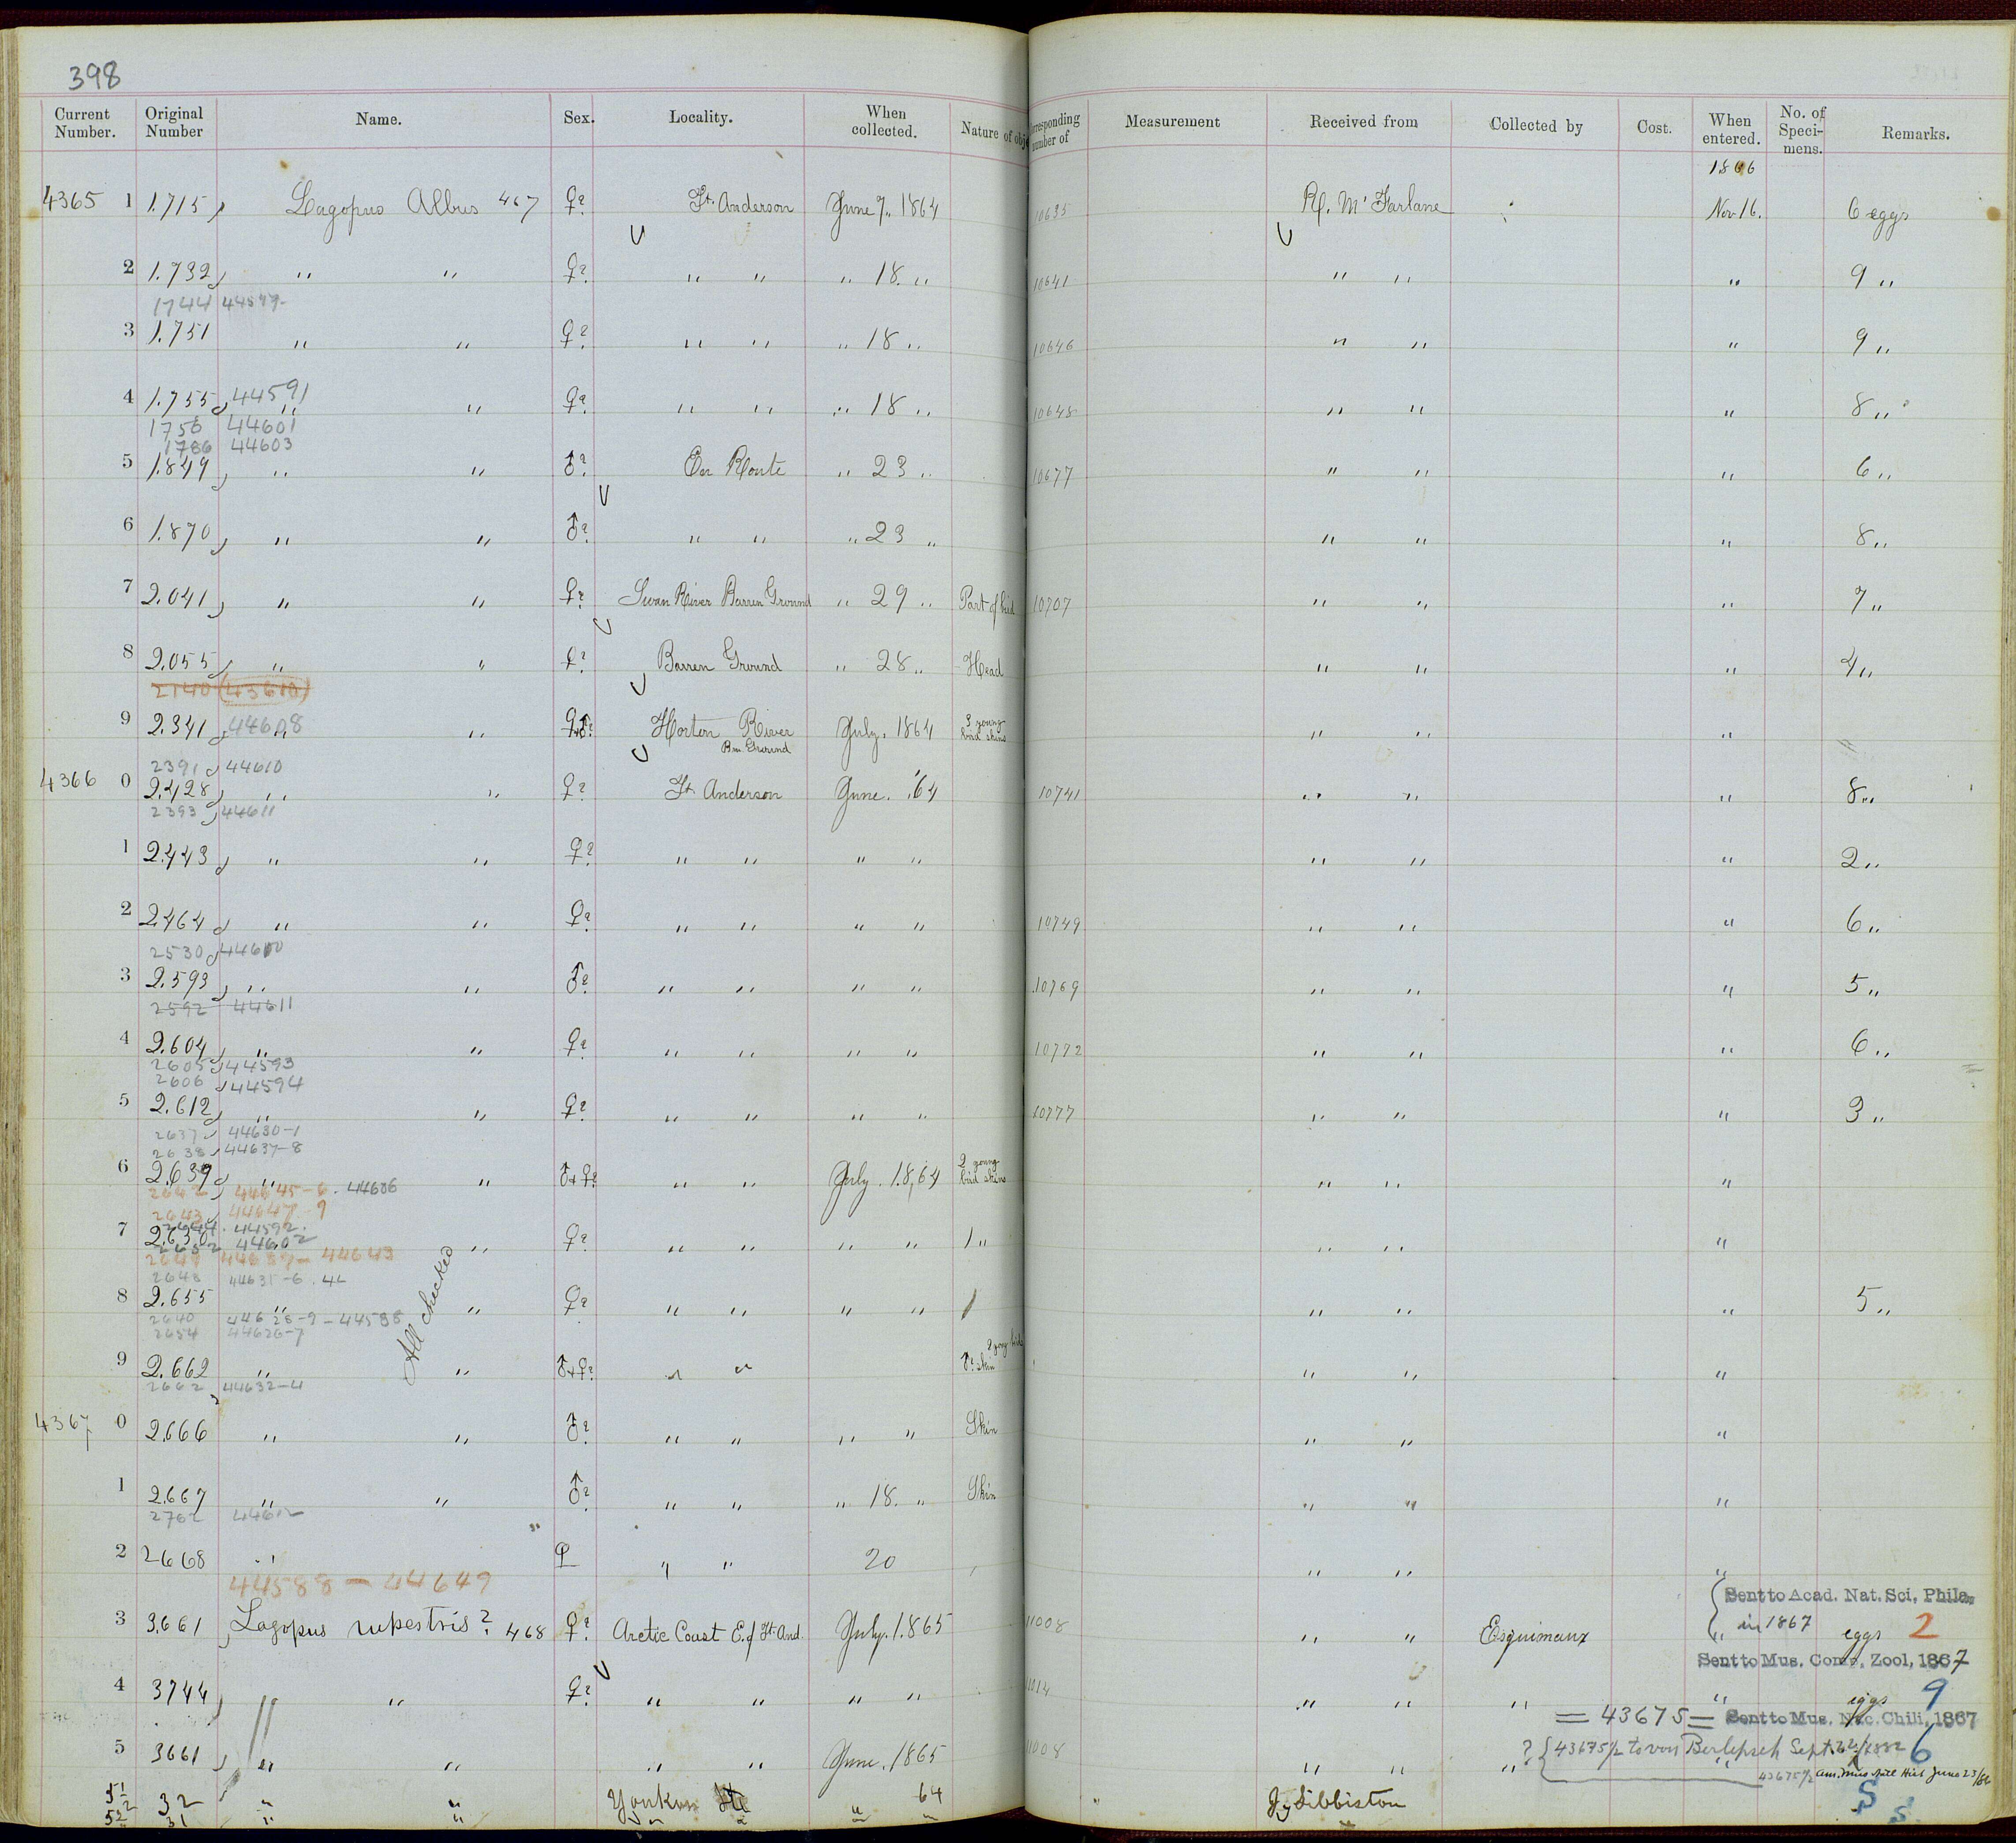 398
Current Number. Original Number Name. Sex. Locality. When collected. Nature of obje rresponding number of Measurement Received from Collected by Cost. When entered. No. of Speci- mens. Remarks.
1866
4365 1 1.715 Lagopus Albus 467 ♀? Ft. Anderson June 7.. 1864 10635 R. McFarlane Nov 16. 6 eggs
2 1.732 " " ♀? " " " 18. " 10641 " " " 9 "
1744
3 1.751 " " ♀? " " " 18 " 10646 " " " 9 "
4 1.755 44591 " " ♀? " " " 18 " " " " 8 "
1756 44601
1786 44603
5 1.849 " " ♂? En Route " 23 " 10677 " " " 6 "
6 1.870 " " ♂? " " " 23 " " " " 8 "
7 2.041 " " ♀? Swan River Barren Ground " 29 " Part of bird 10707 " " " 7 "
8 2.055 " " ♀? Barren Ground " 28 " Head " " " 4 "
2140 (43610)
9 2.341 44608 " " ♀♂? Horton River July. 1864 3 young bird skins " " "
Bn. Ground
2391 44610
4366 0 2.428 " " ♀? Ft. Anderson June. '64 10741 " " " 8 "
2393 44611
1 2.443 " " ♀? " " " " " " " 2 "
2 2.464 " " ♀? " " " " 10749 " " " 6 "
2530 44610
3 2.593 " " ♂? " " " " 10769 " " " 5 "
2592 44611
4 2.604 " " ♀? " " " " 10772 " " " 6 "
2605 44593
2606 44594
5 2.612 " " ♀? " " " " 10777 " " " 3 "
2637 44630-1
2638 44637-8
6 2.639 " " ♂+♀? " " July. 1864 2 young bird skins " " "
2642 44645-6. 44606
2643 44647-9
2644. 44592.
7 2.650 " ♀? " " " " 1 " " " "
2652 44602
44643
2648 44631-6
8 2.655 " " ♀? " " " " " " " 5 "
2640 44628-9-44588
2654 44626-7
All checked
9 2.662 " " ♂+♀? " " 2 young birds ♂? skin " " "
2662 44632-4
4367 0 2.666 " " ♂? " " " " Skin " " "
1 2.667 " " ♂? " " " 18. " Skin " " "
2762 44612
2 2668 " ♀ " " 20 " " "
44588 - 44649
Sent to Acad. Nat. Sci, Phila.
in 1867
3 3.661 Lagopus rupestris? 468 ♀? Arctic Coast E. of Ft. And. July. 1865 11008 " " Esquimaux " eggs 2
Sent to Mus. Comp. Zool, 1867
4 3744 " " ♀? " " " " 11014 " " " " eggs 9
= 43675 = Sent to Mus. Nac. Chili, 1867
5 3661 " " " " June. 1865 11008 " " " 6
? { 43675/2 to von Berlepsch Sept. 22/1882
43675/2 Am. Mus Natl Hist June 23/86
51 32 " " Youkon " 64 Jy Sibbiston S
52 31 " " " " " " S